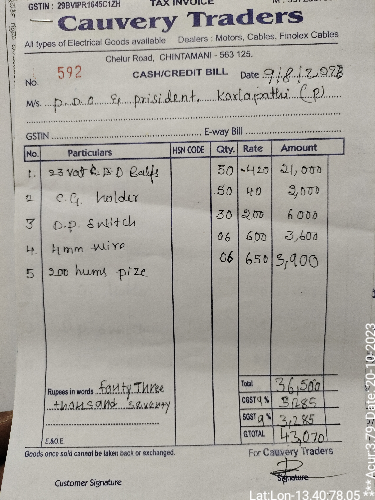 GSTIN : 29BVIPR1645C1ZH TAX INVOICE
Cauvery Traders
All types of Electrical Goods available Dealers : Motors, Cables, Finolex Cables
Chelur Road, CHINTAMANI - 563 125.
No. 592 CASH/CREDIT BILL Date 9/8/2023
M/s. P.D.O & prisident, Karlapathi (P)
GSTIN E-way Bill
No. Particulars HSN CODE Qty. Rate Amount
1. 23 Vat L.E.D 50 420 21,000
2 C.G. holder 50 40 2,000
3 D.P. Switch 30 200 6000
4. 4mm wire 06 600 3,600
5 200 hums pize 06 650 3,900
Total 36,500
Rupees in words fauty Three CGST 9% 3,285
thousand seventy SGST 9% 3,285
E.&O.E G.TOTAL 43,070
Goods once sold cannot be taken back or exchanged. For Cauvery Traders
Customer Signature Signature
Lat:Lon-13.40:78.05
**Acur:3.79 Date:20-10-2023